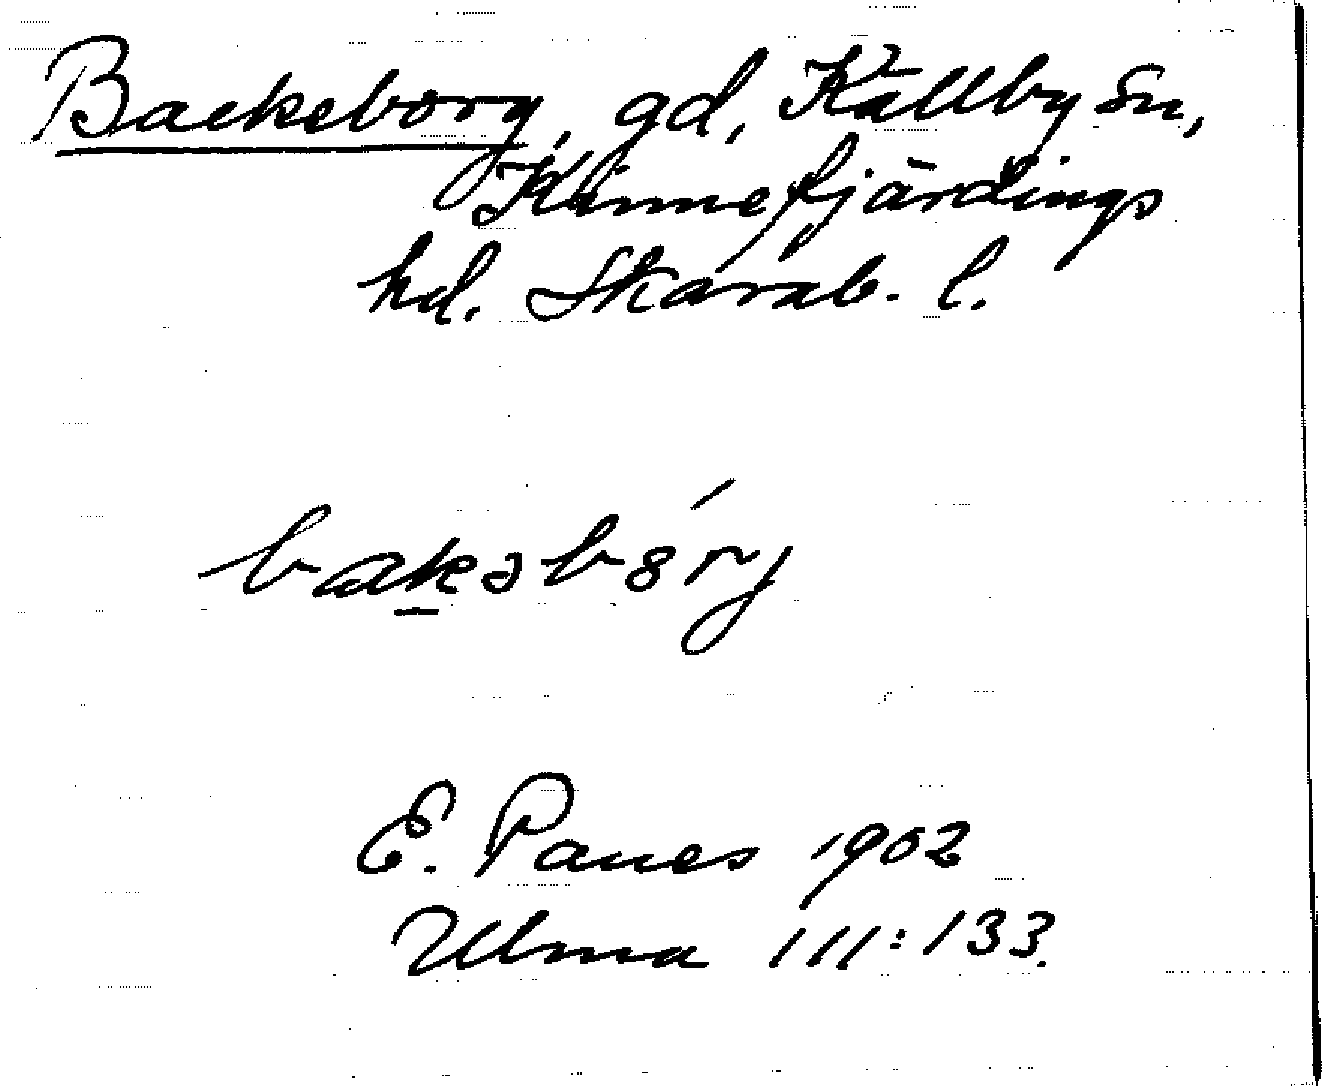 Backeborg, gd, Källby sn,
Kinnefjärdings
hd. Skarab. l.
bakəbórj
E. Panes 1902
Ulma 111:133.